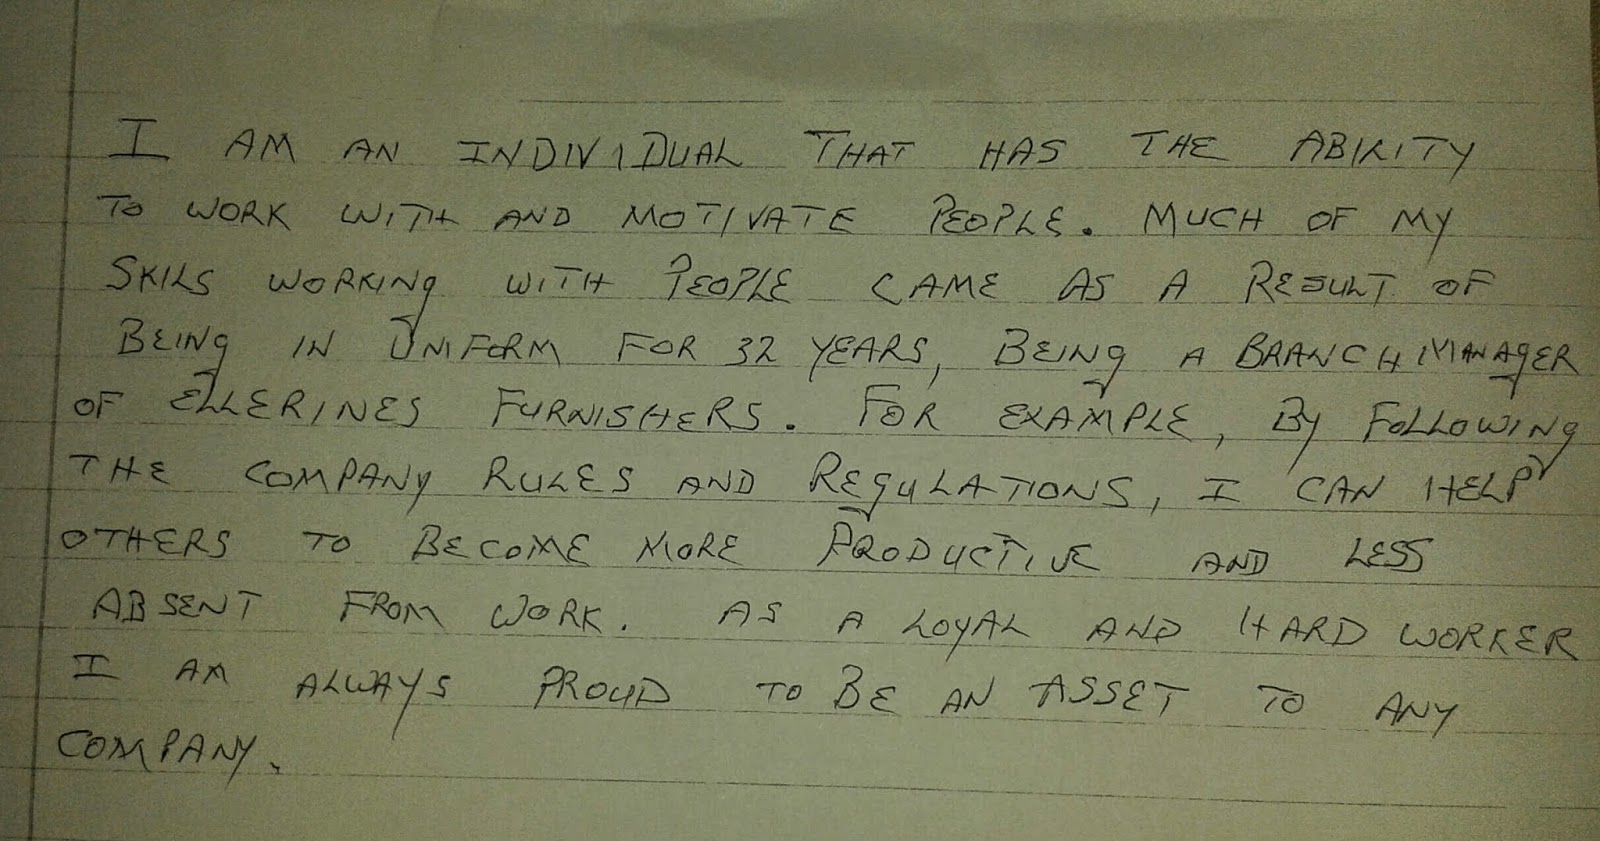 I AM AN INDIVIDUAL THAT HAS THE ABIRITY
TO WORK WITH AND MOTIVATE PEOPLE. MUCH OF MY
SKILS WORKING WITH PEOPLE CAME AS A RESULT OF
BEING IN UNIFORM FOR 32 YEARS, BEING A BRANCH MANAGER
OF ELLERINES FURNISHERS. FOR EXAMPLE, BY FOLLOWING
THE COMPANY RULES AND REGULATIONS, I CAN HELP
OTHERS TO BECOME MORE PRODUCTIVE AND LESS
ABSENT FROM WORK. AS A LOYAL AND HARD WORKER
I AM ALWAYS PROUD TO BE AN ASSET TO ANY
COMPANY.